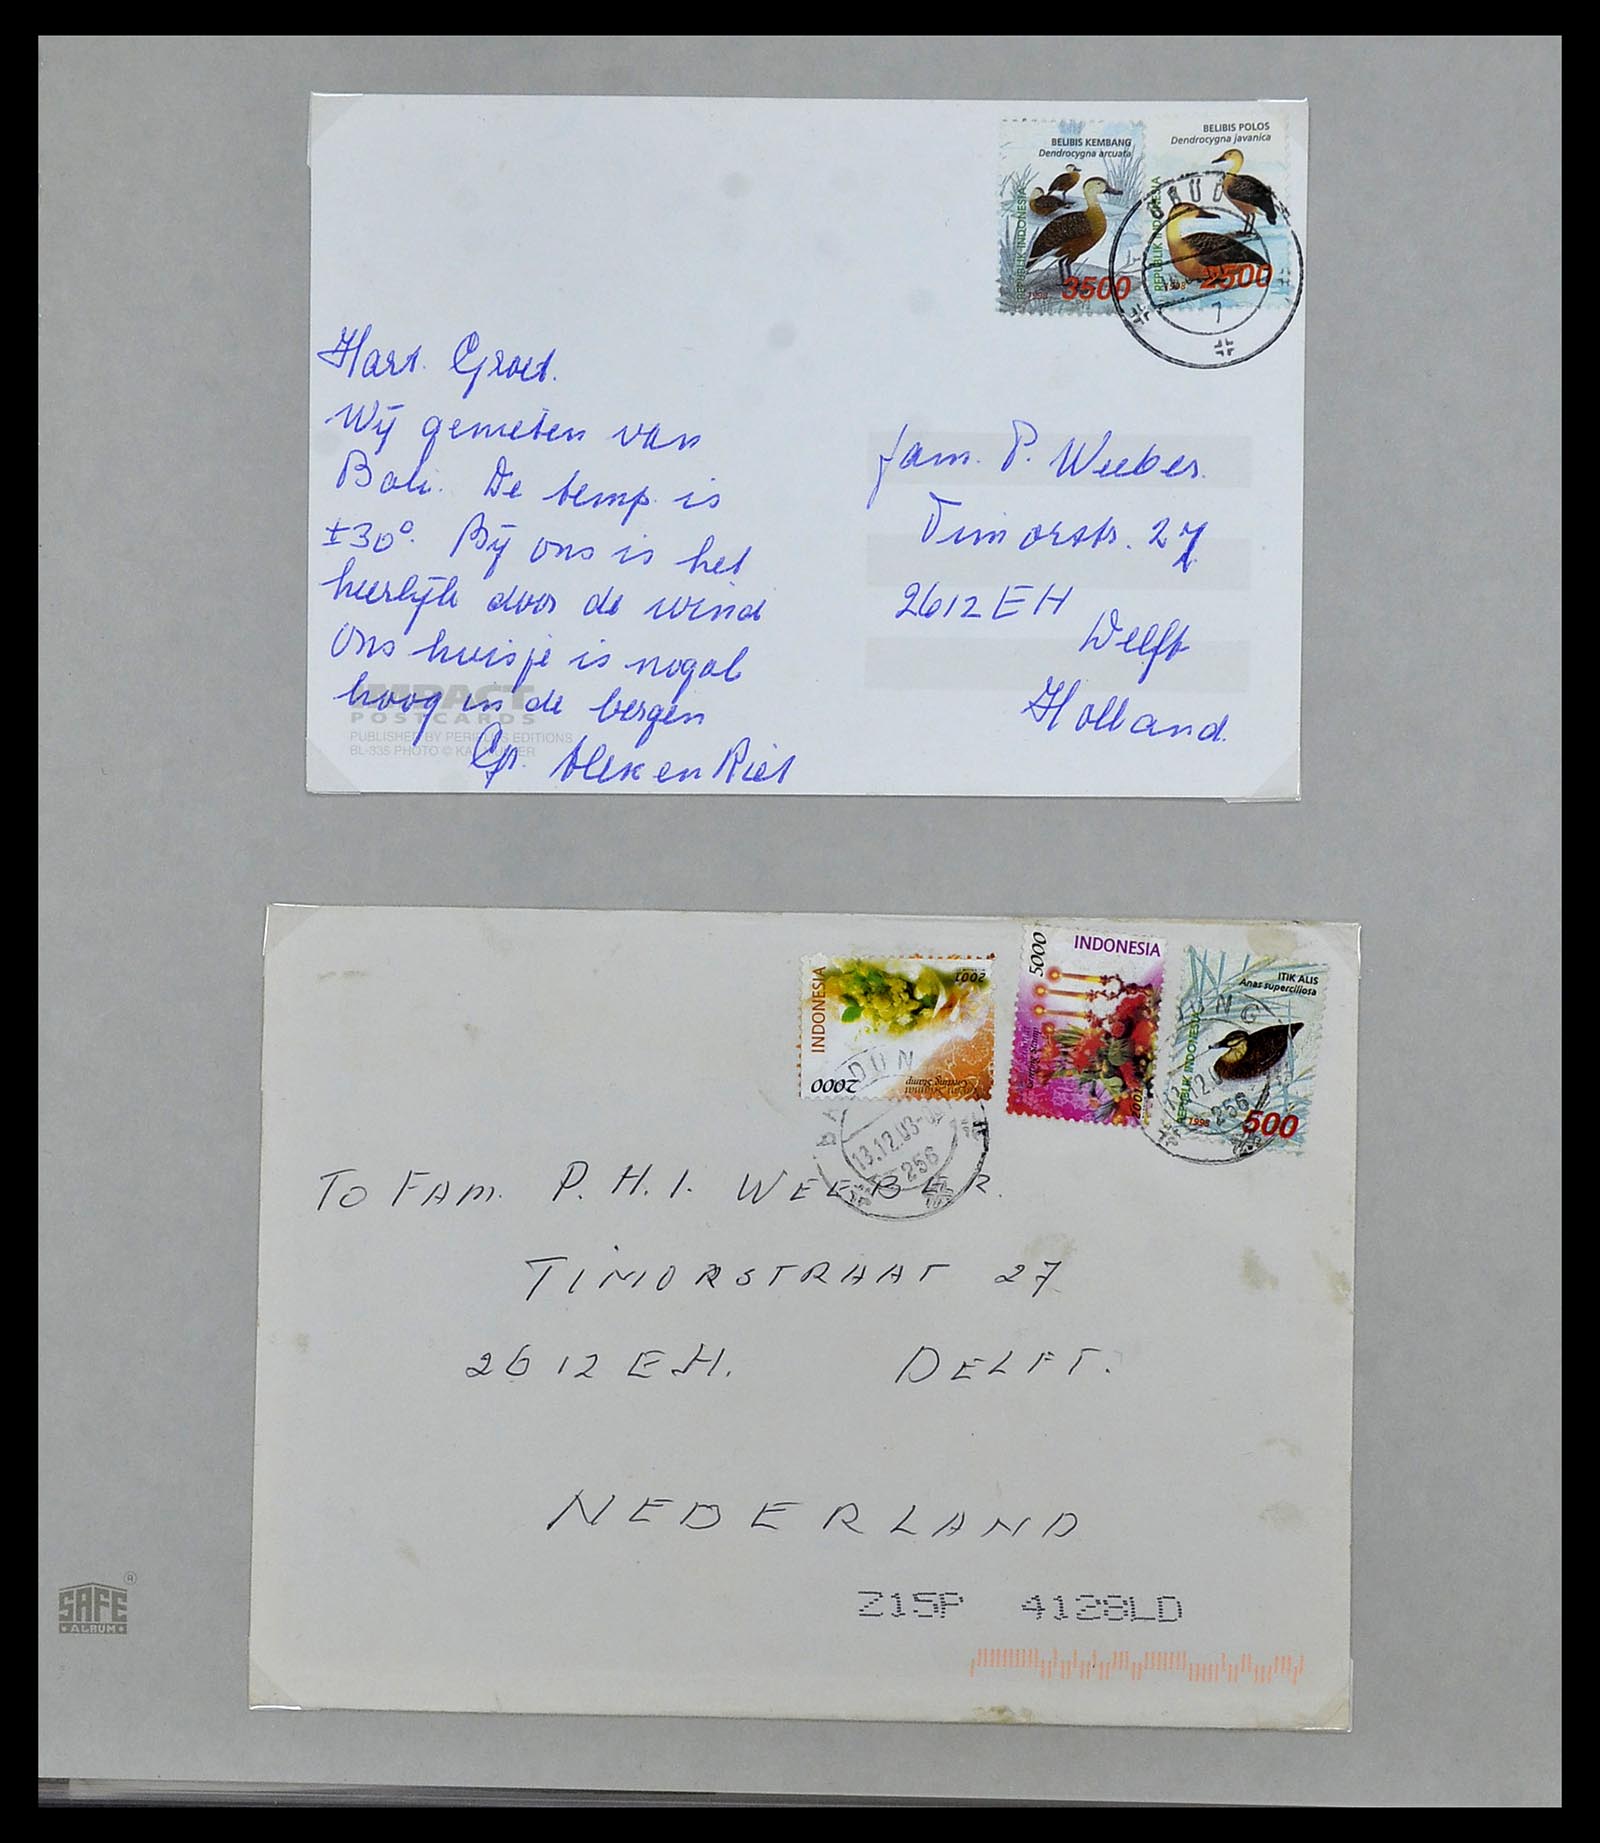 BELIBIS KEMBANG
Dendrocygna arcuata
REPUBLIK INDONESIA
1998 3500
BELIBIS POLOS
Dendrocygna javanica
REPUBLIK INDONESIA
1998 2500
7
Hart. Groet.
Wij genieten van
Bali. De temp. is
±30°. Bij ons is het
heerlijk door de wind
Ons huisje is nogal
hoog in de bergen
Gr. Alex en Riet
fam. P. Weeber.
Timorstr. 27
2612 EH
Delft
Holland.
IMPACT
POSTCARDS
PUBLISHED BY PERIPLUS EDITIONS
BL-335 PHOTO ©
INDONESIA
2001
2000
Greeting Stamp
5000
INDONESIA
Greeting Stamp
2001
ITIK ALIS
Anas superciliosa
REPUBLIK INDONESIA
1998 500
13.12.03
256
256
TO FAM. P. H. I. WEEBER.
TIMORSTRAAT 27
2612 EH. DELFT.
NEDERLAND
Z15P 4128LD
SAFE ®
ALBUM